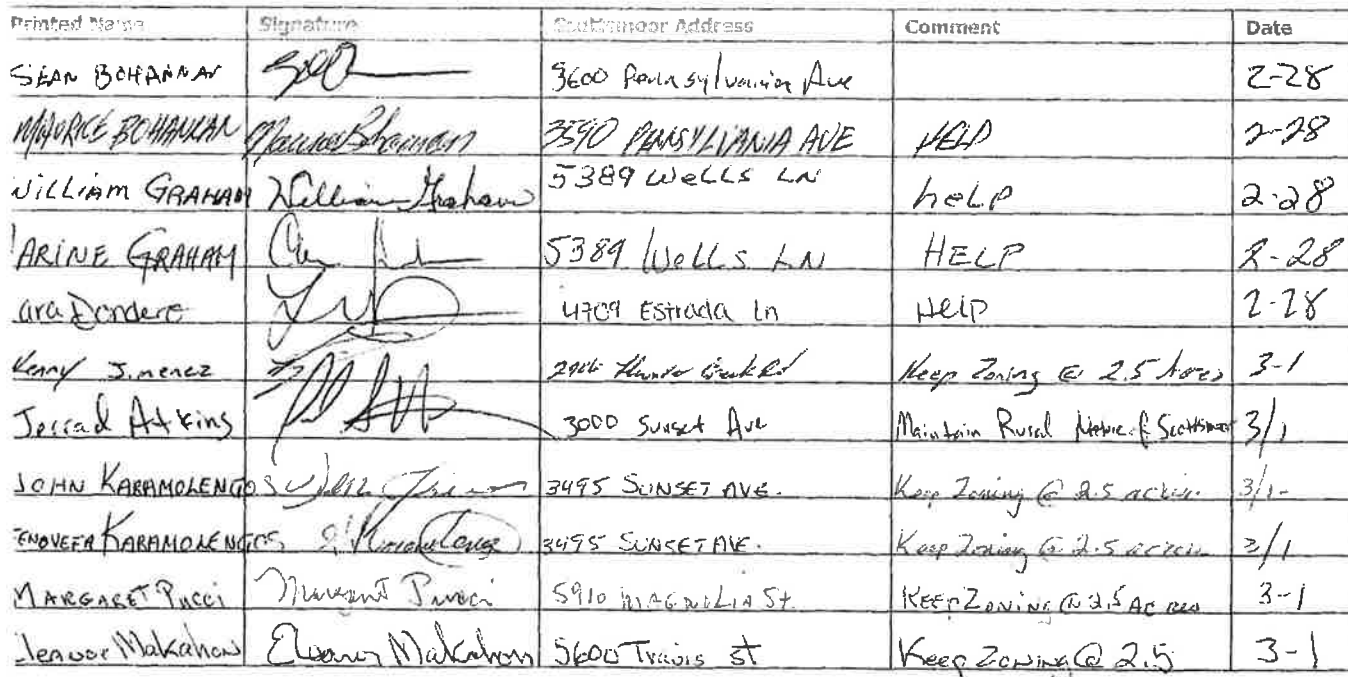 Printed Name Signature Scottsmoor Address Comment Date
SEAN BOHANNAN 3600 Pennsylvania Ave 2-28
MAURICE BOHANNAN Maurice Bohannan 3590 PENNSYLVANIA AVE HELP 2-28
WILLIAM GRAHAM William Graham 5389 WeLLS LN heLP 2-28
ARINE GRAHAM 5389 WeLLS LN HELP 2-28
ara Dondero 4709 Estrada Ln HelP 2-28
Kenny Jimenez Rd Keep Zoning @ 2.5 Acres 3-1
Jerrad Atkins 3000 Sunset Ave Maintain Rural Nature of Scottsmoor 3/1
JOHN KARAMOLENGOS 3495 SUNSET AVE. Keep Zoning @ 2.5 acres 3/1
ENOVEFA KARAMOLENGOS 3495 SUNSET AVE. Keep Zoning @ 2.5 acres 3/1
MARGARET PUCCI Margaret Pucci 5910 MAGNOLIA St. KEEP ZONING @ 2.5 ACRES 3-1
leanor Makahon Eleanor Makahon 5600 Travis St Keep Zoning @ 2.5 3-1